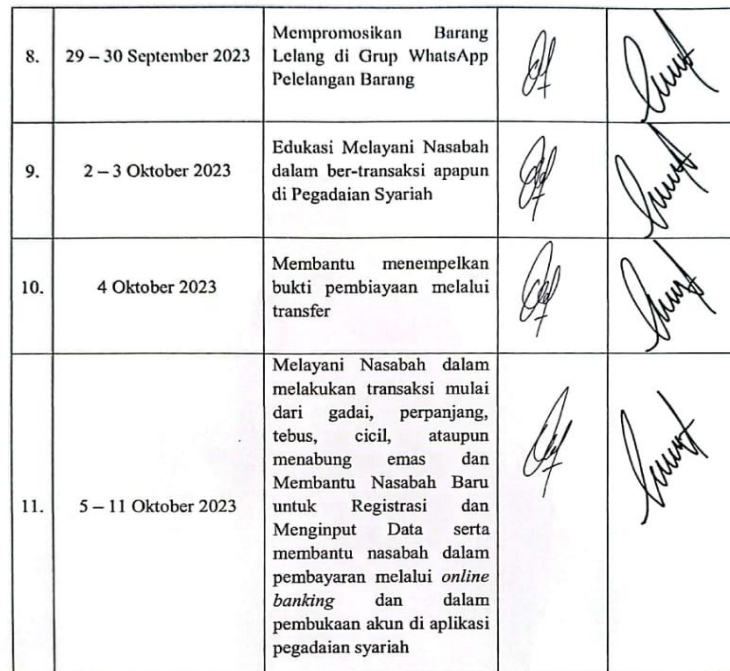 8. 29 – 30 September 2023 Mempromosikan Barang
Lelang di Grup WhatsApp
Pelelangan Barang
9. 2 – 3 Oktober 2023 Edukasi Melayani Nasabah
dalam ber-transaksi apapun
di Pegadaian Syariah
10. 4 Oktober 2023 Membantu menempelkan
bukti pembiayaan melalui
transfer
11. 5 – 11 Oktober 2023 Melayani Nasabah dalam
melakukan transaksi mulai
dari gadai, perpanjang,
tebus, cicil, ataupun
menabung emas dan
Membantu Nasabah Baru
untuk Registrasi dan
Menginput Data serta
membantu nasabah dalam
pembayaran melalui online
banking dan dalam
pembukaan akun di aplikasi
pegadaian syariah